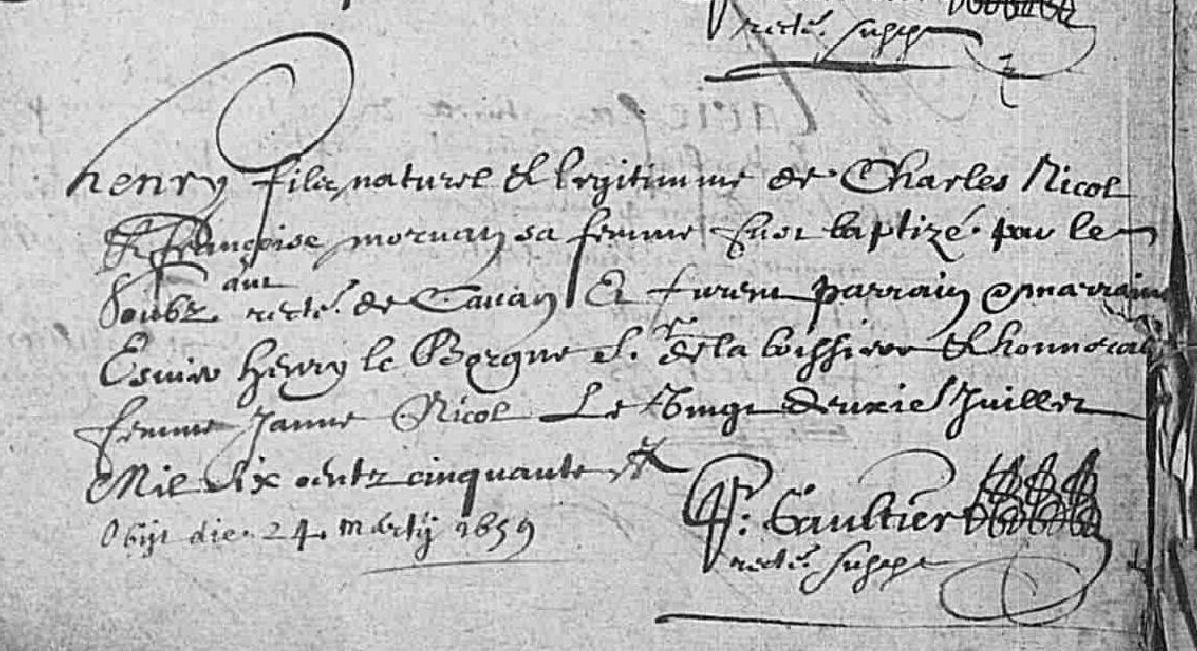 rectr. susst
henry filz naturel & legitimme de Charles Nicol
& Françoise morvan sa femme Fust baptizé par le
soubzant rectr. de Cavan Et furent parrain & marraine
Escuier Henry le Borgne Sr. de la boissiere & honnorable
femme Janne Nicol Le Vingt deuxies Juillet
Mil Six centz cinquante
Obijt die 24 martij 1659
F: Gaultier
rectr. susst